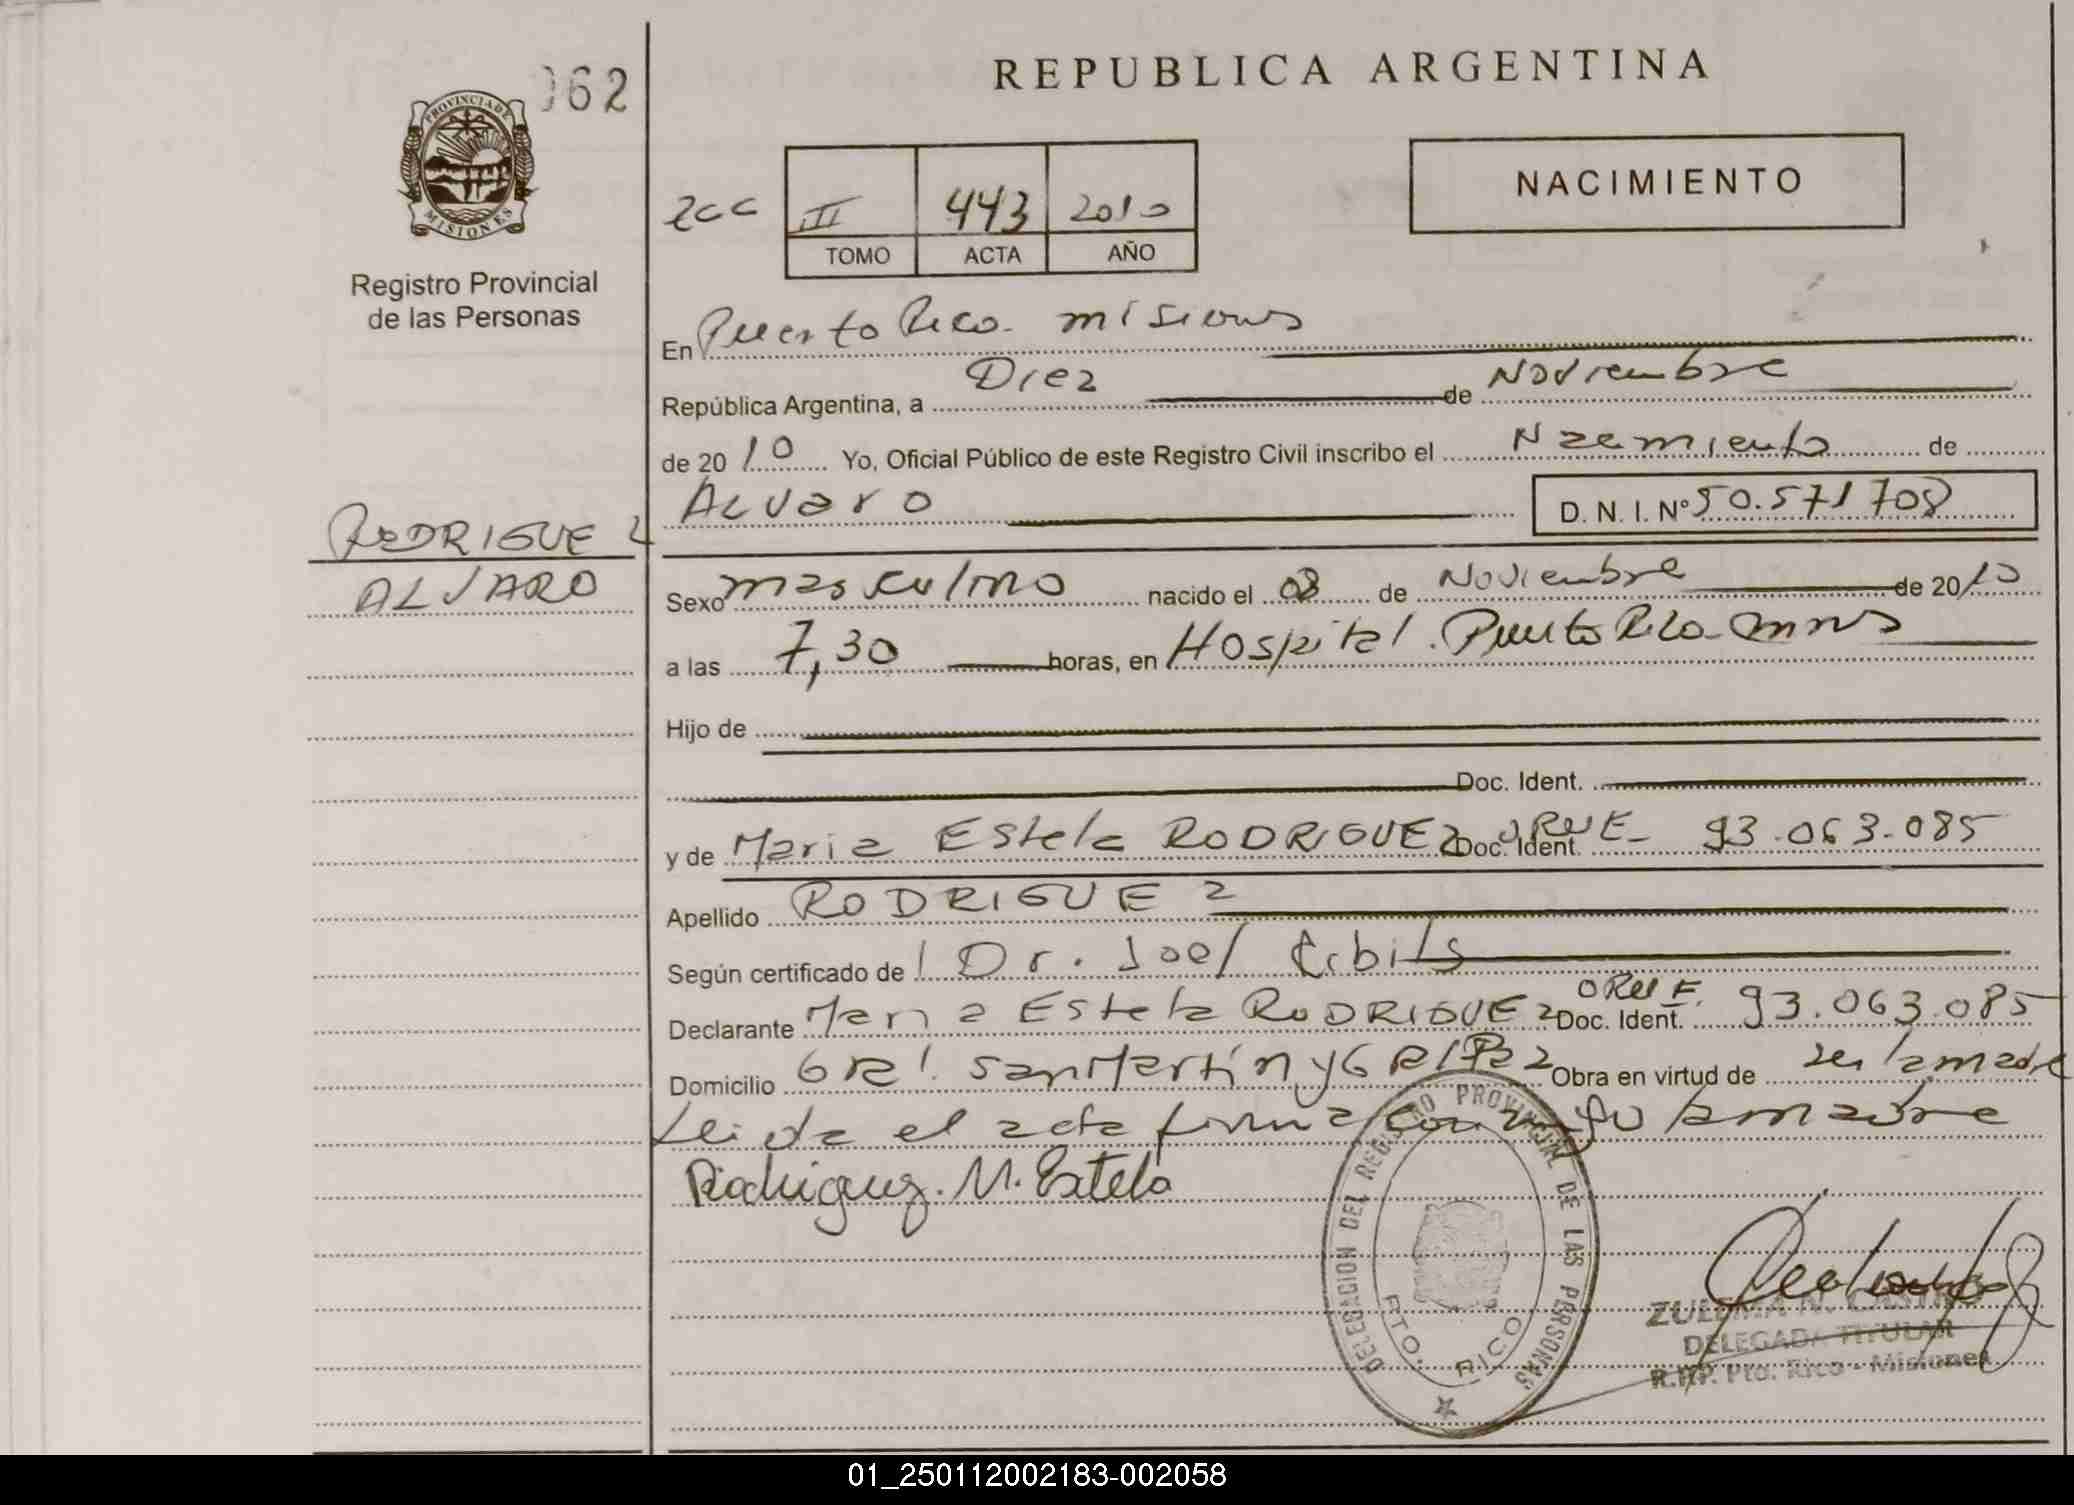 062
REPUBLICA ARGENTINA
PROVINCIA DE MISIONES
Registro Provincial
de las Personas
NACIMIENTO
III 443 2010
TOMO ACTA AÑO
En Puerto Rico - Misiones
República Argentina, a Diez de Noviembre
de 2010 Yo, Oficial Público de este Registro Civil inscribo el Nacimiento de
ALVaro D. N. I. Nº 50.571708
RODRIGUEZ
ALVARO
Sexo masculino nacido el 08 de Noviembre de 2010
a las 7,30 horas, en Hospital. Puerto Rico - Mnes
Hijo de
Doc. Ident.
y de Maria Estela RODRIGUEZ Doc. Ident. 93.063.085
Apellido RODRIGUEZ
Según certificado de Dr. Joel
Declarante Maria Estela RODRIGUEZ Doc. Ident. 93.063.085
Domicilio Gral. San Martín y Gral Paz Obra en virtud de ser la madre
Leida el acta firma con migo la madre
Rodriguez. M. Estela
DELEGACION DEL REGISTRO PROVINCIAL DE LAS PERSONAS
PTO. RICO
ZULEMA N. CASTRO
DELEGADA TITULAR
R.P.P. Pto. Rico - Misiones
01_250112002183-002058